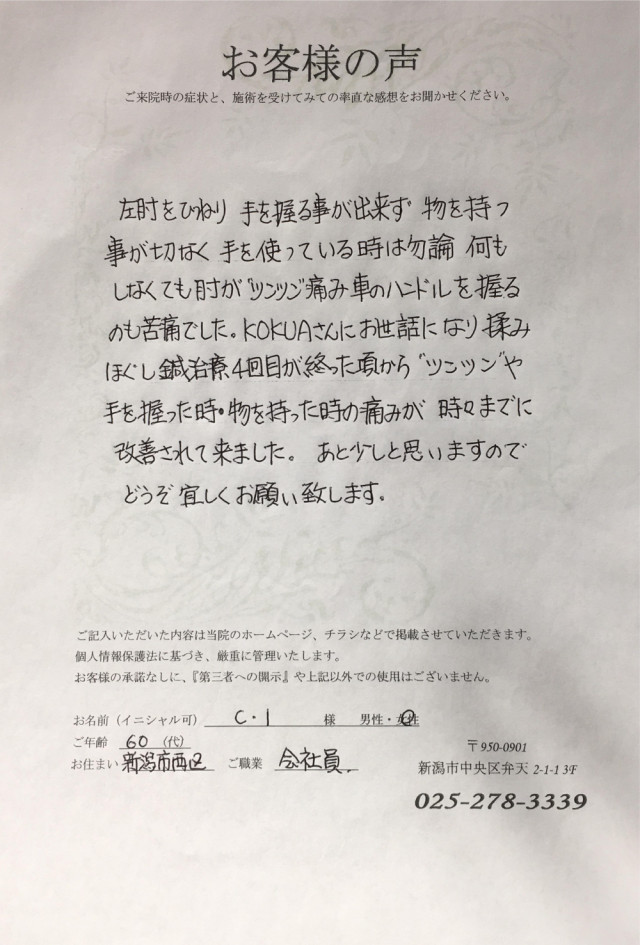 お客様の声
ご来院時の症状と、施術を受けてみての率直な感想をお聞かせください。
左肘をひねり 手を握る事が出来ず 物を持つ
事が切なく 手を使っている時は勿論 何も
しなくても肘が〝ツンツン〟痛み車のハンドルを握る
のも苦痛でした。KOKUAさんにお世話になり揉み
ほぐし鍼治療4回目が終った頃から〝ツンツン〟や
手を握った時・物を持った時の痛みが 時々までに
改善されて来ました。 あと少しと思いますので
どうぞ宜しくお願い致します。
ご記入いただいた内容は当院のホームページ、チラシなどで掲載させていただきます。
個人情報保護法に基づき、厳重に管理いたします。
お客様の承諾なしに、『第三者への開示』や上記以外での使用はございません。
お名前（イニシャル可） C・I 様 男性・女性
ご年齢 60（代）
お住まい 新潟市西区 ご職業 会社員.
〒950-0901
新潟市中央区弁天 2-1-1 3F
025-278-3339